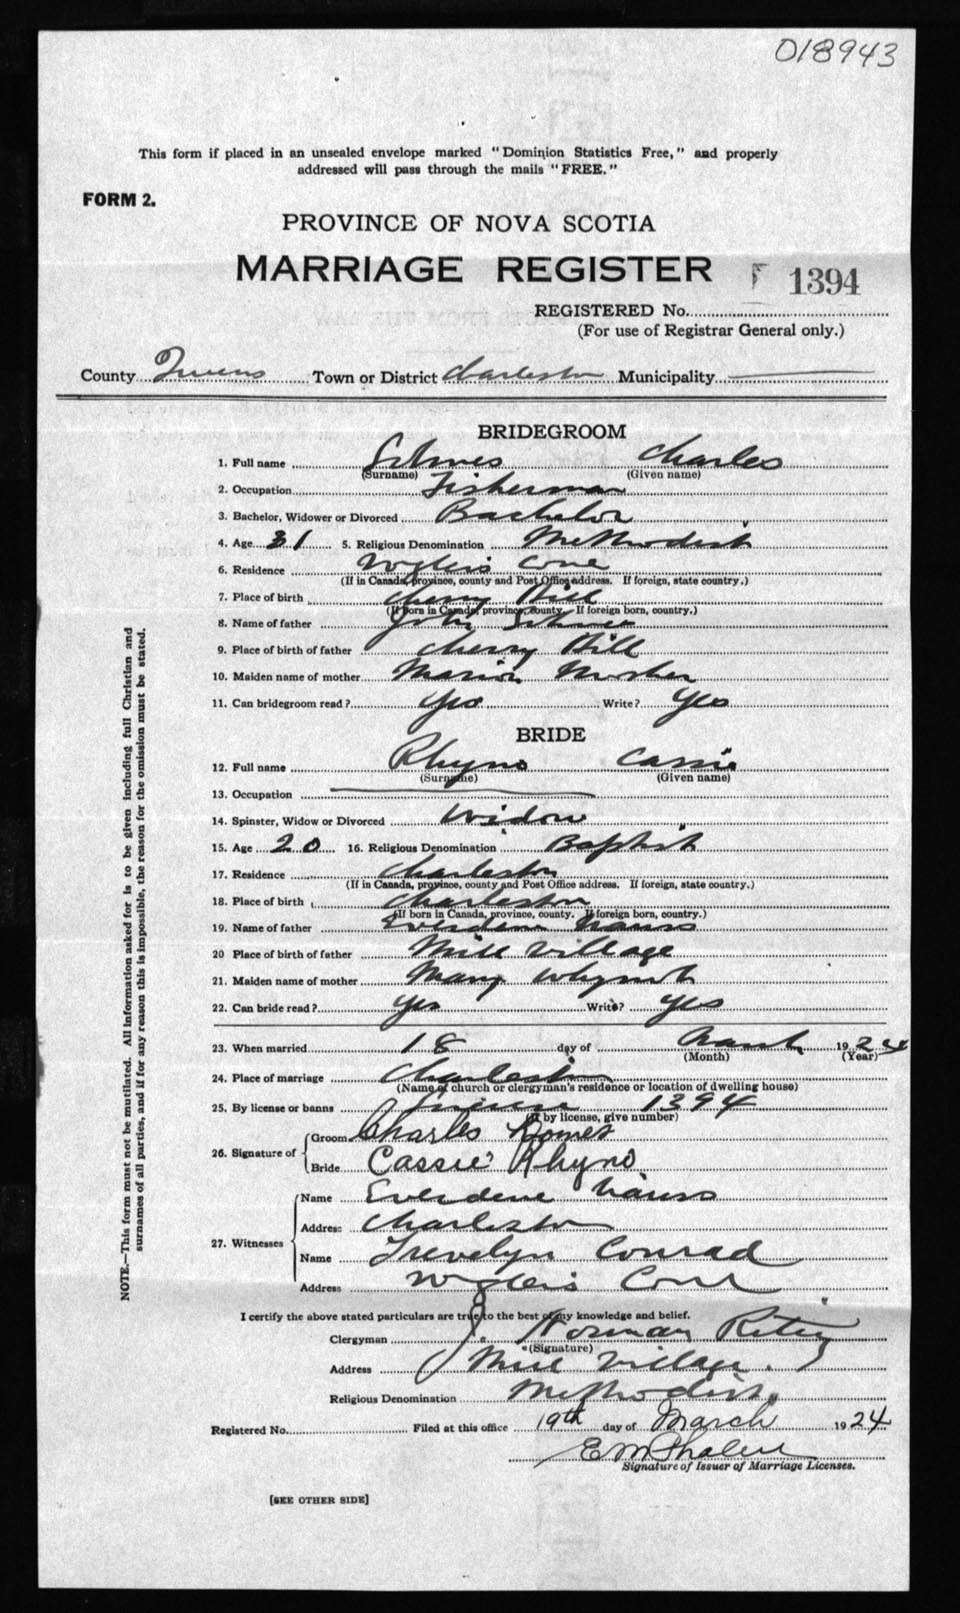 018943
This form if placed in an unsealed envelope marked "Dominion Statistics Free," and properly
addressed will pass through the mails "FREE."
FORM 2.
PROVINCE OF NOVA SCOTIA
MARRIAGE REGISTER
1394
REGISTERED No.
(For use of Registrar General only.)
County Queens Town or District Charleston Municipality
BRIDEGROOM
1. Full name Charles
(Surname) (Given name)
2. Occupation Fisherman
3. Bachelor, Widower or Divorced Bachelor
4. Age 31 5. Religious Denomination Methodist
6. Residence Cove
(If in Canada, province, county and Post Office address. If foreign, state country.)
7. Place of birth Cherry Hill
(If born in Canada, province, county. If foreign born, country.)
8. Name of father John
9. Place of birth of father Cherry Hill
10. Maiden name of mother Mosher
11. Can bridegroom read? Yes Write? Yes
BRIDE
12. Full name Rhyno Cassie
(Surname) (Given name)
13. Occupation
14. Spinster, Widow or Divorced Widow
15. Age 20 16. Religious Denomination Baptist
17. Residence Charleston
(If in Canada, province, county and Post Office address. If foreign, state country.)
18. Place of birth Charleston
(If born in Canada, province, county. If foreign born, country.)
19. Name of father Everdene
20 Place of birth of father Mill Village
21. Maiden name of mother Mary Whynot
22. Can bride read? Yes Write? Yes
23. When married 18 day of March 1924
(Month) (Year)
24. Place of marriage Charleston
(Name of church or clergyman's residence or location of dwelling house)
25. By license or banns License 1394
(If by license, give number)
26. Signature of Groom Charles
Bride Cassie Rhyno
27. Witnesses Name Everdene
Address Charleston
Name Trevelyn Conrad
Address Cove
I certify the above stated particulars are true to the best of my knowledge and belief.
Clergyman J. Norman
(Signature)
Address Mill Village.
Religious Denomination Methodist.
Registered No. Filed at this office 19th day of March 1924
E M Phalen
Signature of Issuer of Marriage Licenses.
[SEE OTHER SIDE]
NOTE.—This form must not be mutilated. All information asked for is to be given including full Christian and
surnames of all parties, and if for any reason this is impossible, the reason for the omission must be stated.